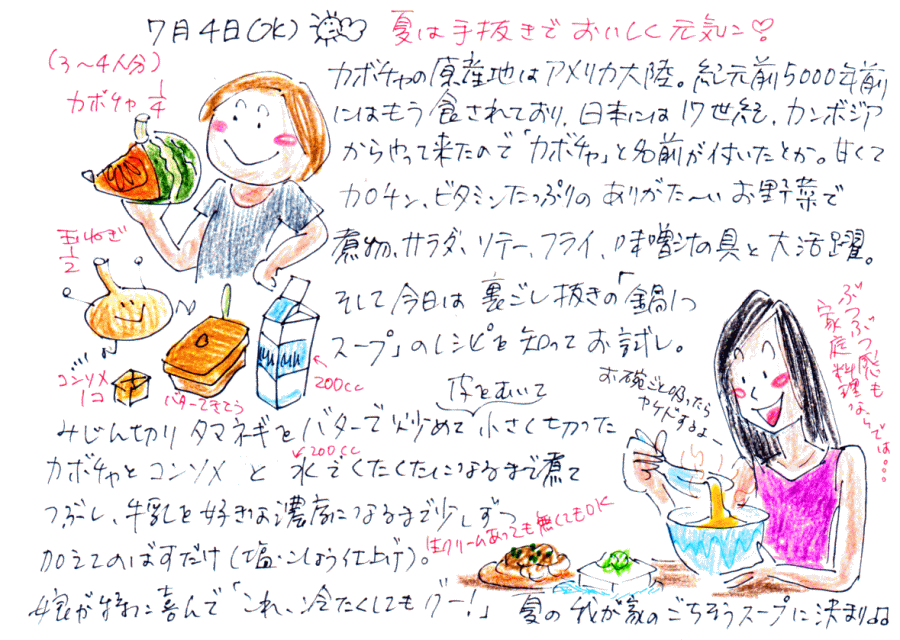 7月4日(水)
夏は手抜きでおいしく元気に♡
(3〜4人分)
カボチャ 1/4
カボチャの原産地はアメリカ大陸。紀元前5000年前
にはもう食されており、日本には17世紀、カンボジア
からやって来たので「カボチャ」と名前が付いたとか。甘くて
カロチン、ビタミンたっぷりのありがた〜いお野菜で
煮物、サラダ、ソテー、フライ、味噌汁の具と大活躍。
玉ねぎ 1/2
そして今日は裏ごし抜きの「鍋1つ
スープ」のレシピを知ってお試し。
コンソメ 1コ
バターてきとう
200cc
ぶつぶつ感も
家庭料理ならでは。。。
お碗ごと吸ったら
ヤケドするよー
皮をむいて
みじん切りタマネギをバターで炒めて小さく切った
200cc
カボチャとコンソメと水でくたくたになるまで煮て
つぶし、牛乳を好きな濃度になるまで少しずつ
加えてのばすだけ(塩・こしょう仕上げ)。
生クリームあっても無くてもOK
嫁が特に喜んで「これ、冷たくしてもグー!」夏の我が家のごちそうスープに決まり♫